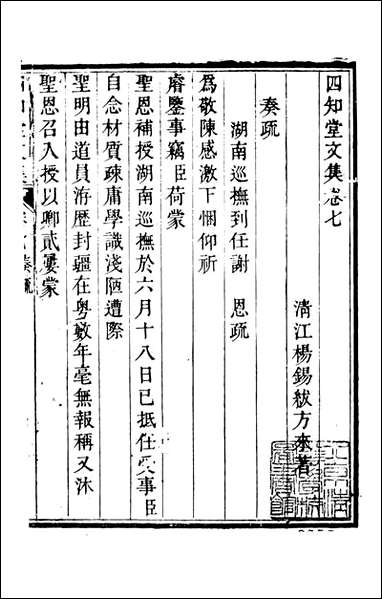 四知堂文集卷七
清江楊錫紱方來著
奏疏
湖南巡撫到任謝 恩疏
爲敬陳感激下悃仰祈
睿鑒事竊臣荷蒙
聖恩補授湖南巡撫於六月十八日已抵任受事臣
自念材質疎庸學識淺陋遭際
聖明由道員洊歷封疆在粤數年毫無報稱又沐
聖恩召入授以卿貳屢蒙